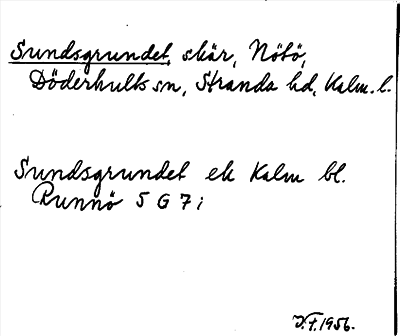 Sundsgrundet, skär, Nötö,
Döderhults sn, Stranda hd, Kalm. l.
Sundsgrundet ek Kalm bl.
Runnö 5 G 7 i
V.F. 1956.